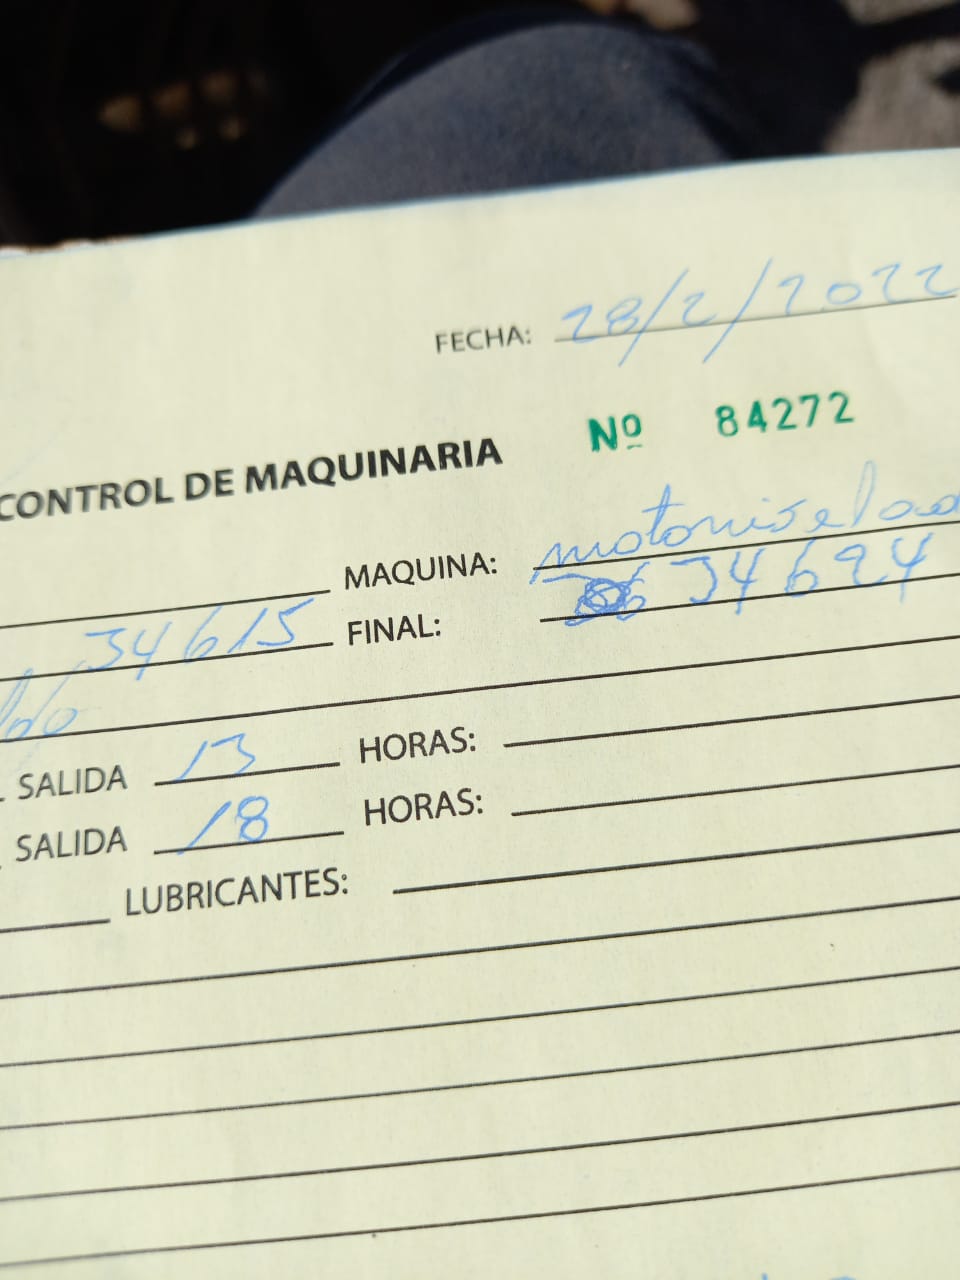 FECHA: 28/2/2022
Nº 84272
CONTROL DE MAQUINARIA
MAQUINA: motonivelad
34615 FINAL: 34694
SALIDA 13 HORAS:
SALIDA 18 HORAS:
LUBRICANTES: